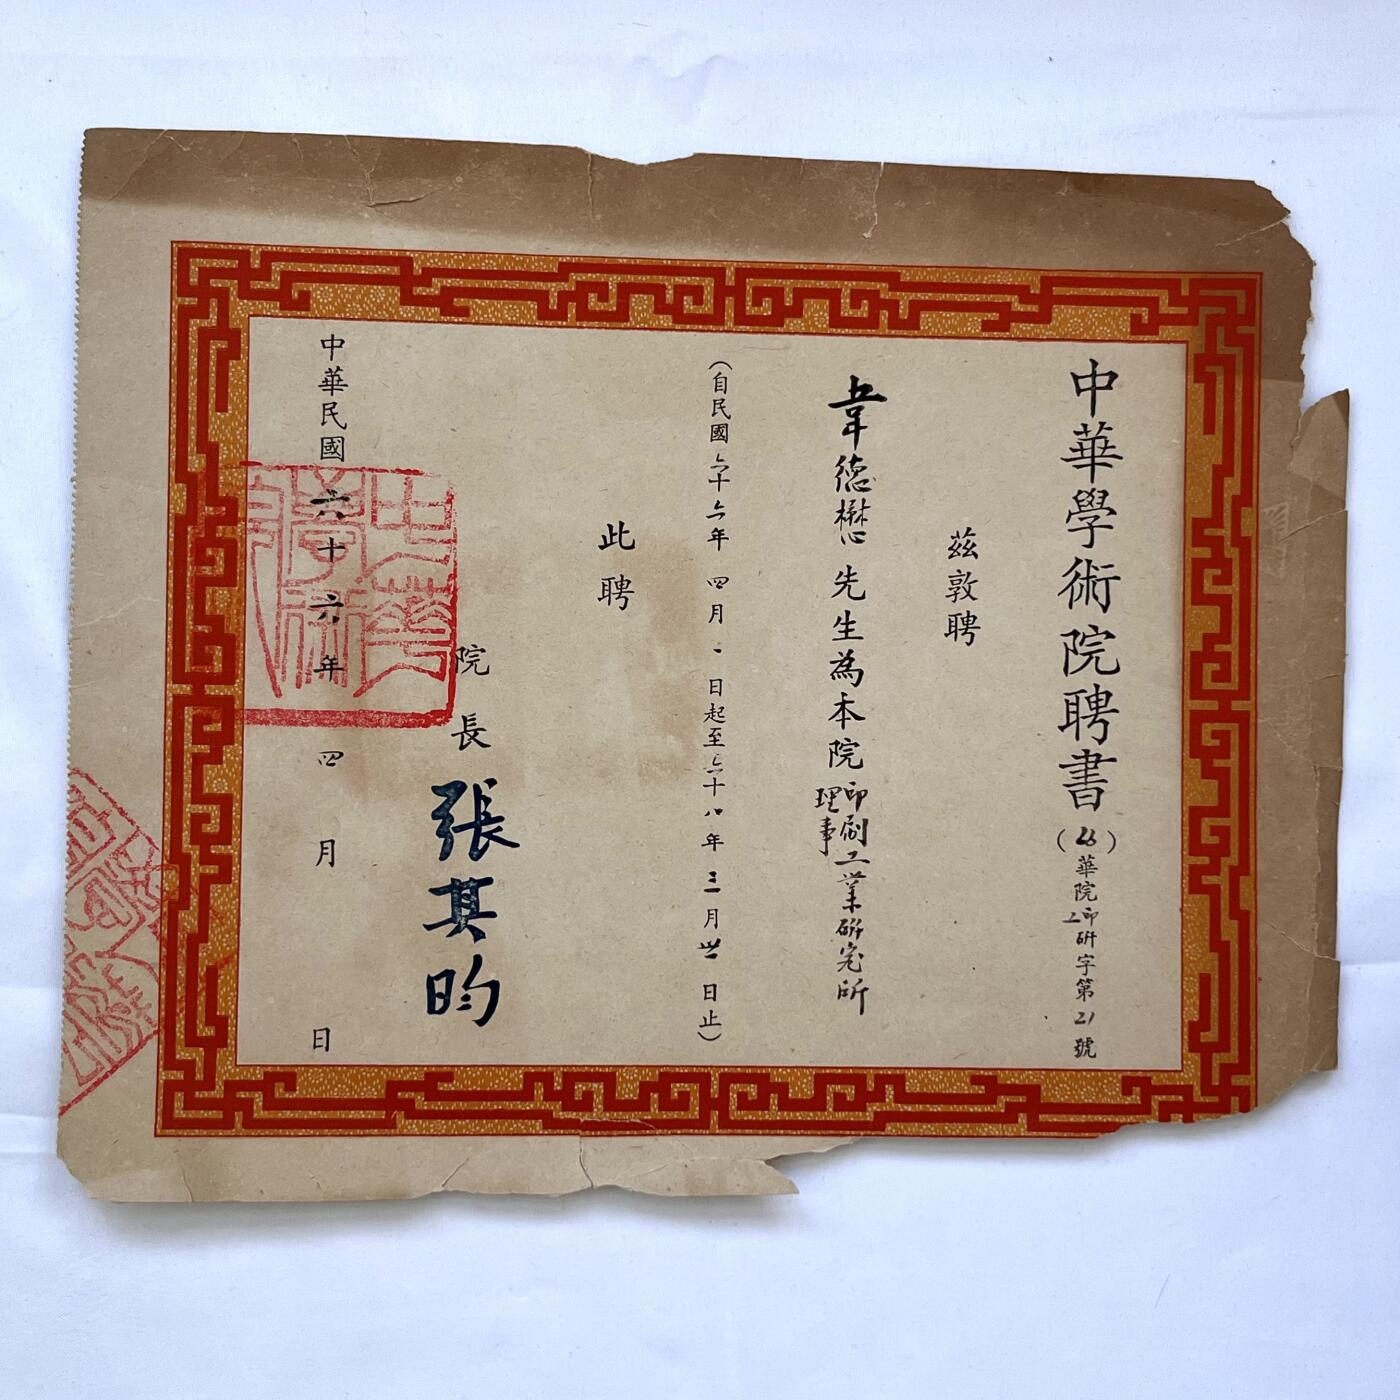 中華學術院聘書（66華院印工研字第21號）
茲敦聘
韋德懋先生為本院印刷工業研究所理事
（自民國六十六年四月一日起至六十八年三月卅一日止）
此聘
院長張其昀
中華民國六十六年四月日